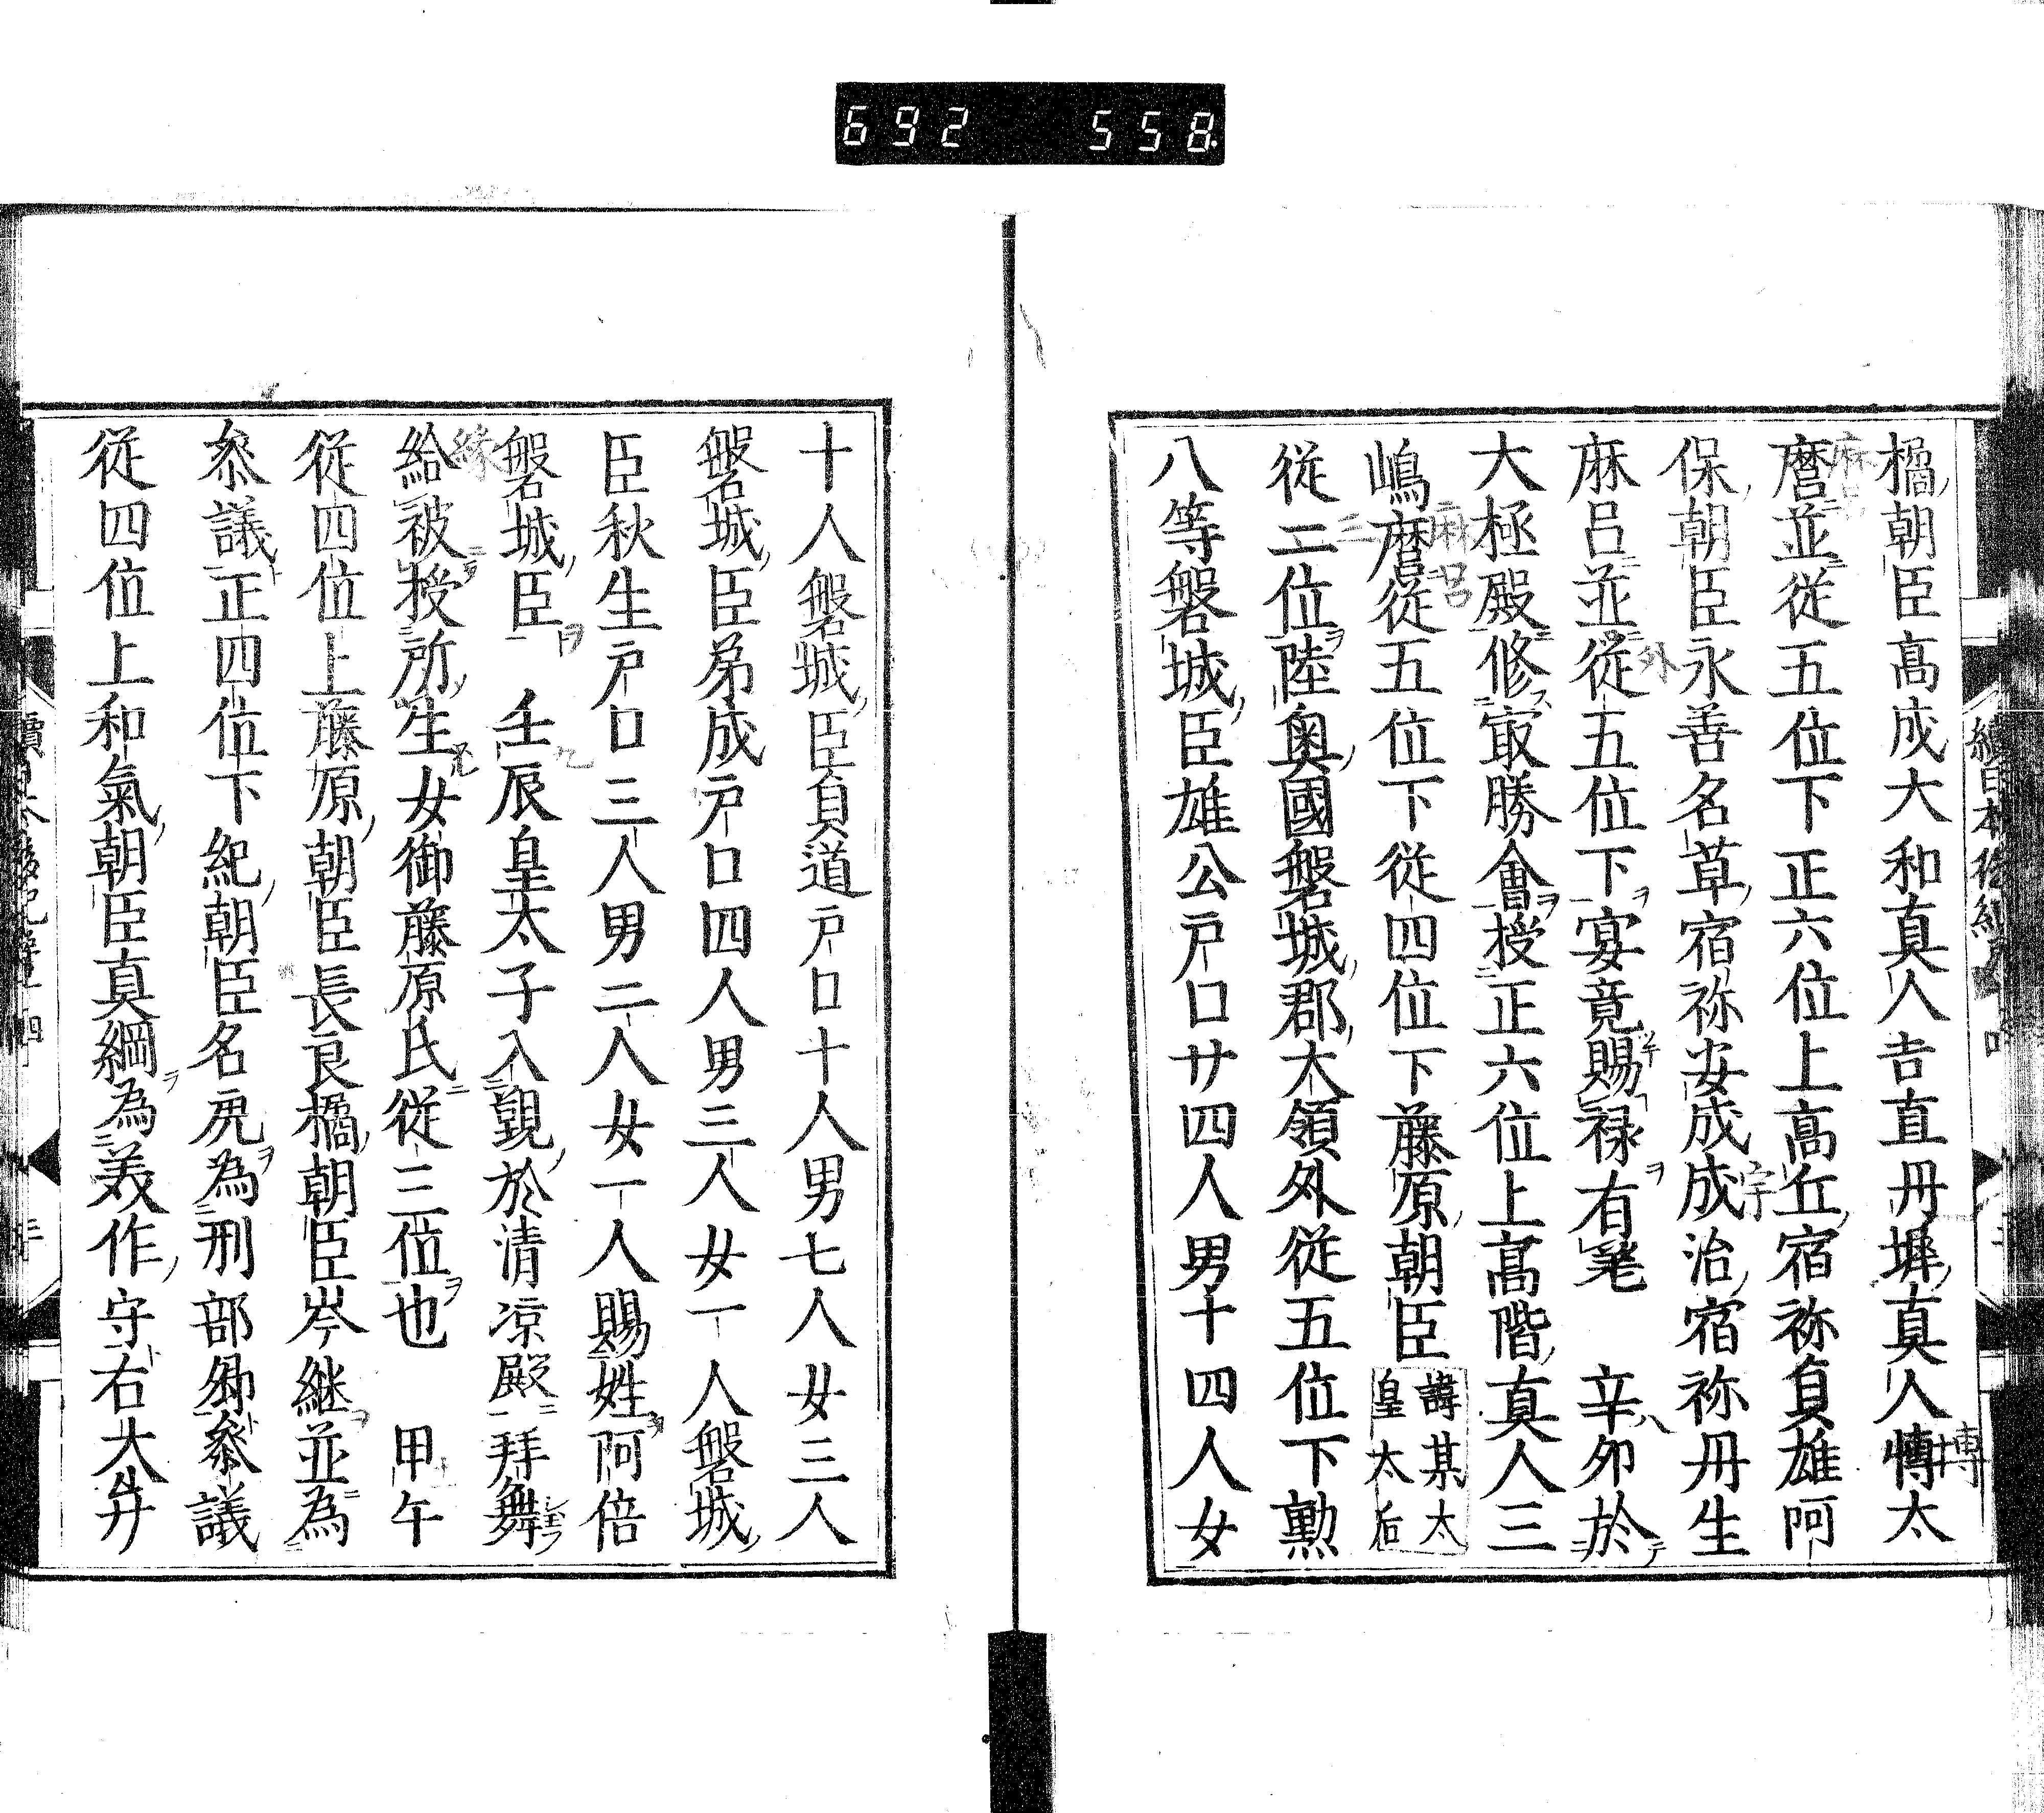 692 558
橘朝臣高成大和真人吉直丹墀真人愽太
麿並從五位下正六位上高丘宿祢貟雄阿
保朝臣永善名草宿祢安成成治宿祢丹生
麻呂並從五位下宴竟賜禄有䒭 辛夘於
大極殿修㝡勝會授正六位上髙階真人三
嶋麿從五位下從四位下藤原朝臣諱某太皇太后
從二位陸奥國磐城郡大領外從五位下勲
八等磐城臣雄公戸口廿四人男十四人女
十人磐城臣貟道戸口十人男七人女三人
磐城臣弟成戸口四人男三人女一人磐城
臣秋生戸口三人男二人女一人賜姓阿倍
磐城臣 壬辰皇太子入覲於清凉殿拜舞
給被授所生女御藤原氏從三位也 甲午
從四位上藤原朝臣長良橘朝臣岑継並為
叅議正四位下紀朝臣名虎為刑部卿叅議
從四位上和氣朝臣真綱為美作守右大弁